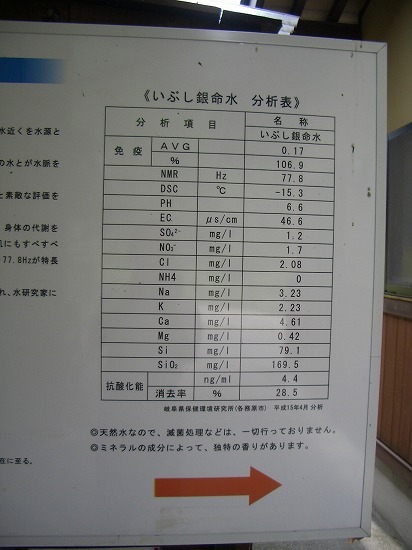 水近くを水源と
の水とが水脈を
と素敵な評価を
身体の代謝を
にもすべすべ
77.8Hzが特長
れ、水研究家に
在に至る。
《いぶし銀命水 分析表》
分析項目 名称
いぶし銀命水
免疫 AVG 0.17
% 106.9
NMR Hz 77.8
DSC ℃ -15.3
PH 6.6
EC μs/cm 46.6
SO₄²⁻ mg/l 1.2
NO₃⁻ mg/l 1.7
Cl mg/l 2.08
NH4 mg/l 0
Na mg/l 3.23
K mg/l 2.23
Ca mg/l 4.61
Mg mg/l 0.42
Si mg/l 79.1
SiO₂ mg/l 169.5
抗酸化能 ng/ml 4.4
消去率 % 28.5
岐阜県保健環境研究所(各務原市) 平成15年4月 分析
◎天然水なので、滅菌処理などは、一切行っておりません。
◎ミネラルの成分によって、独特の香りがあります。